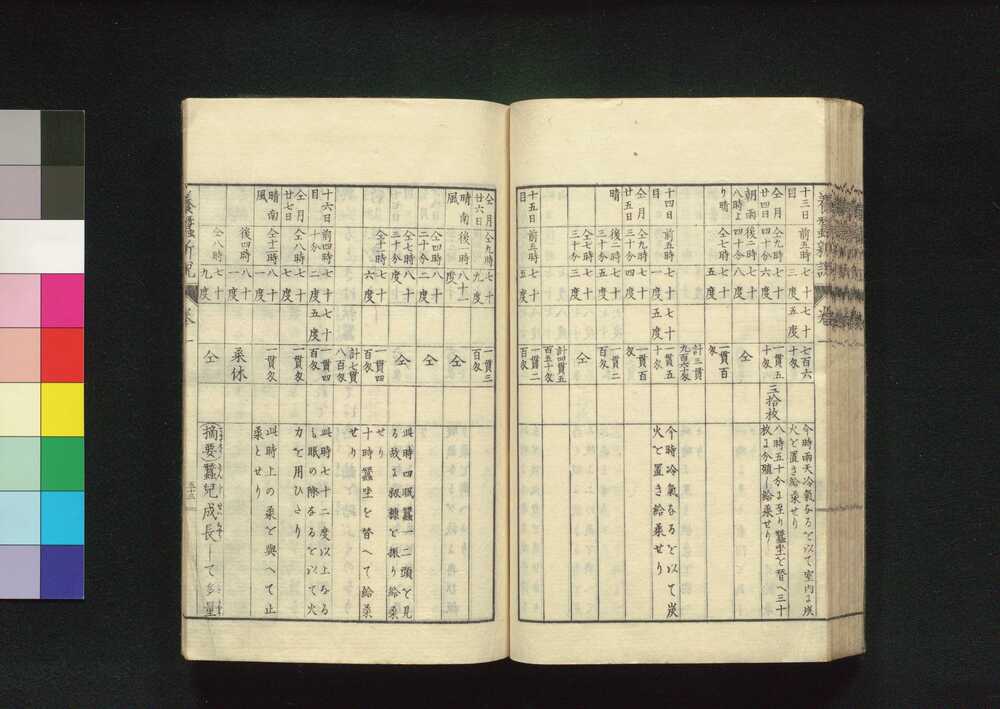 養蠶新説 卷一
十三日目 前五時 七十三度五 七百六十匁 今時雨天冷氣なるを以て室内に炭
火を置き給桑せり
仝月廿四日 仝九時四十分 七十六度 一貫五十匁 三拾枚 八時五十分に至り蠶坐を替へ三十
枚に分殖し給桑せり
朝雨八時より晴 後二時四十分 七十八度 仝
七十五度 一貫百匁
計三貫九百六十匁
十四日目 前五時 七十一度五 一貫五十匁 今時冷氣なるを以て炭
火を置き給桑せり
仝月廿五日 仝九時三十分 七十四度 一貫百匁
晴 後二時三十分 七十五度 一貫二百匁
仝七時三十分 七十三度 仝
計四貫五百五十匁
十五日目 前五時 七十五度 一貫二百匁
仝月廿六日 仝九時 七十九度 一貫三百匁
晴南風 後一時 八十一度 仝
仝四時二十分 八十二度 仝
仝七時三十分 八十度 仝 此時四眠蠶一二頭を見
る故に籾糠を振り給桑
せり
仝十一時 七十六度 一貫四百匁 十時蠶坐を替へて給桑
せり
計七貫八百匁
十六日目 前四時十分 七十二度五 一貫四百匁 此時七十二度以上なる
も眠の際なるを以て火
力を用ひたり
仝月廿七日 仝八時 七十七度 一貫匁
晴南風 仝十一時 八十一度 一貫匁 此時上の桑を與へて止
桑とせり
後四時 八十一度 桑休
仝八時 七十九度 仝 (摘要)蠶兒成長して多量
養蠶新説 卷一
五十五